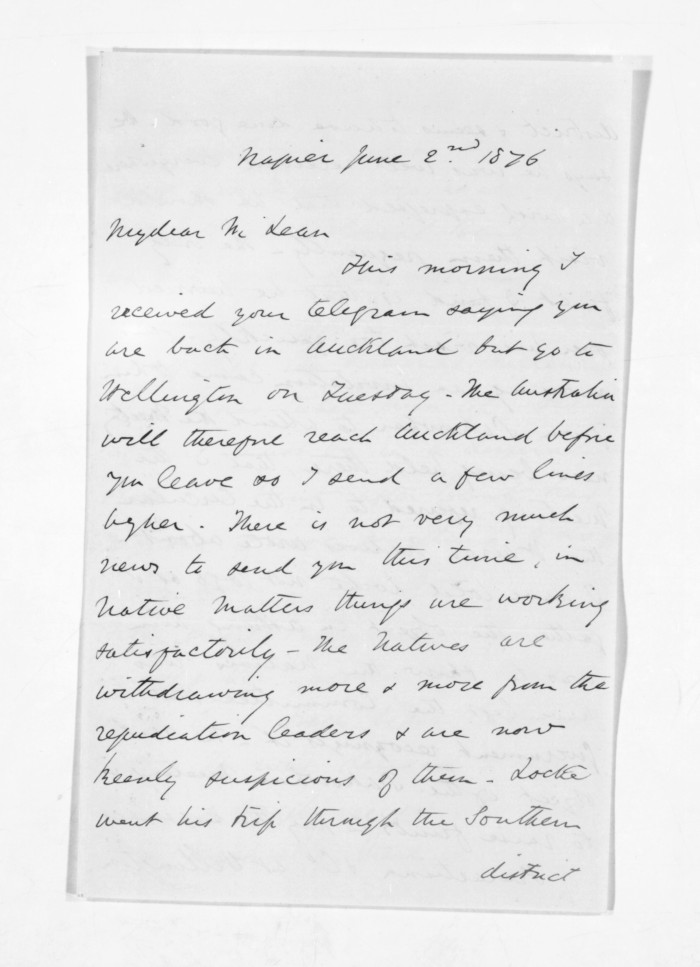 Napier June 2nd 1876
My dear McLean
This morning I
received your telegram saying you
are back in Auckland but go to
Wellington on Tuesday - The Australia
will therefore reach Auckland before
you leave so I send a few lines
by her. There is not very much
news to send you this time, in
Native Matters things are working
satisfactorily - The Natives are
withdrawing more & more from the
repudiation leaders & are now
keenly suspicious of them - Locke
went his trip through the Southern
district